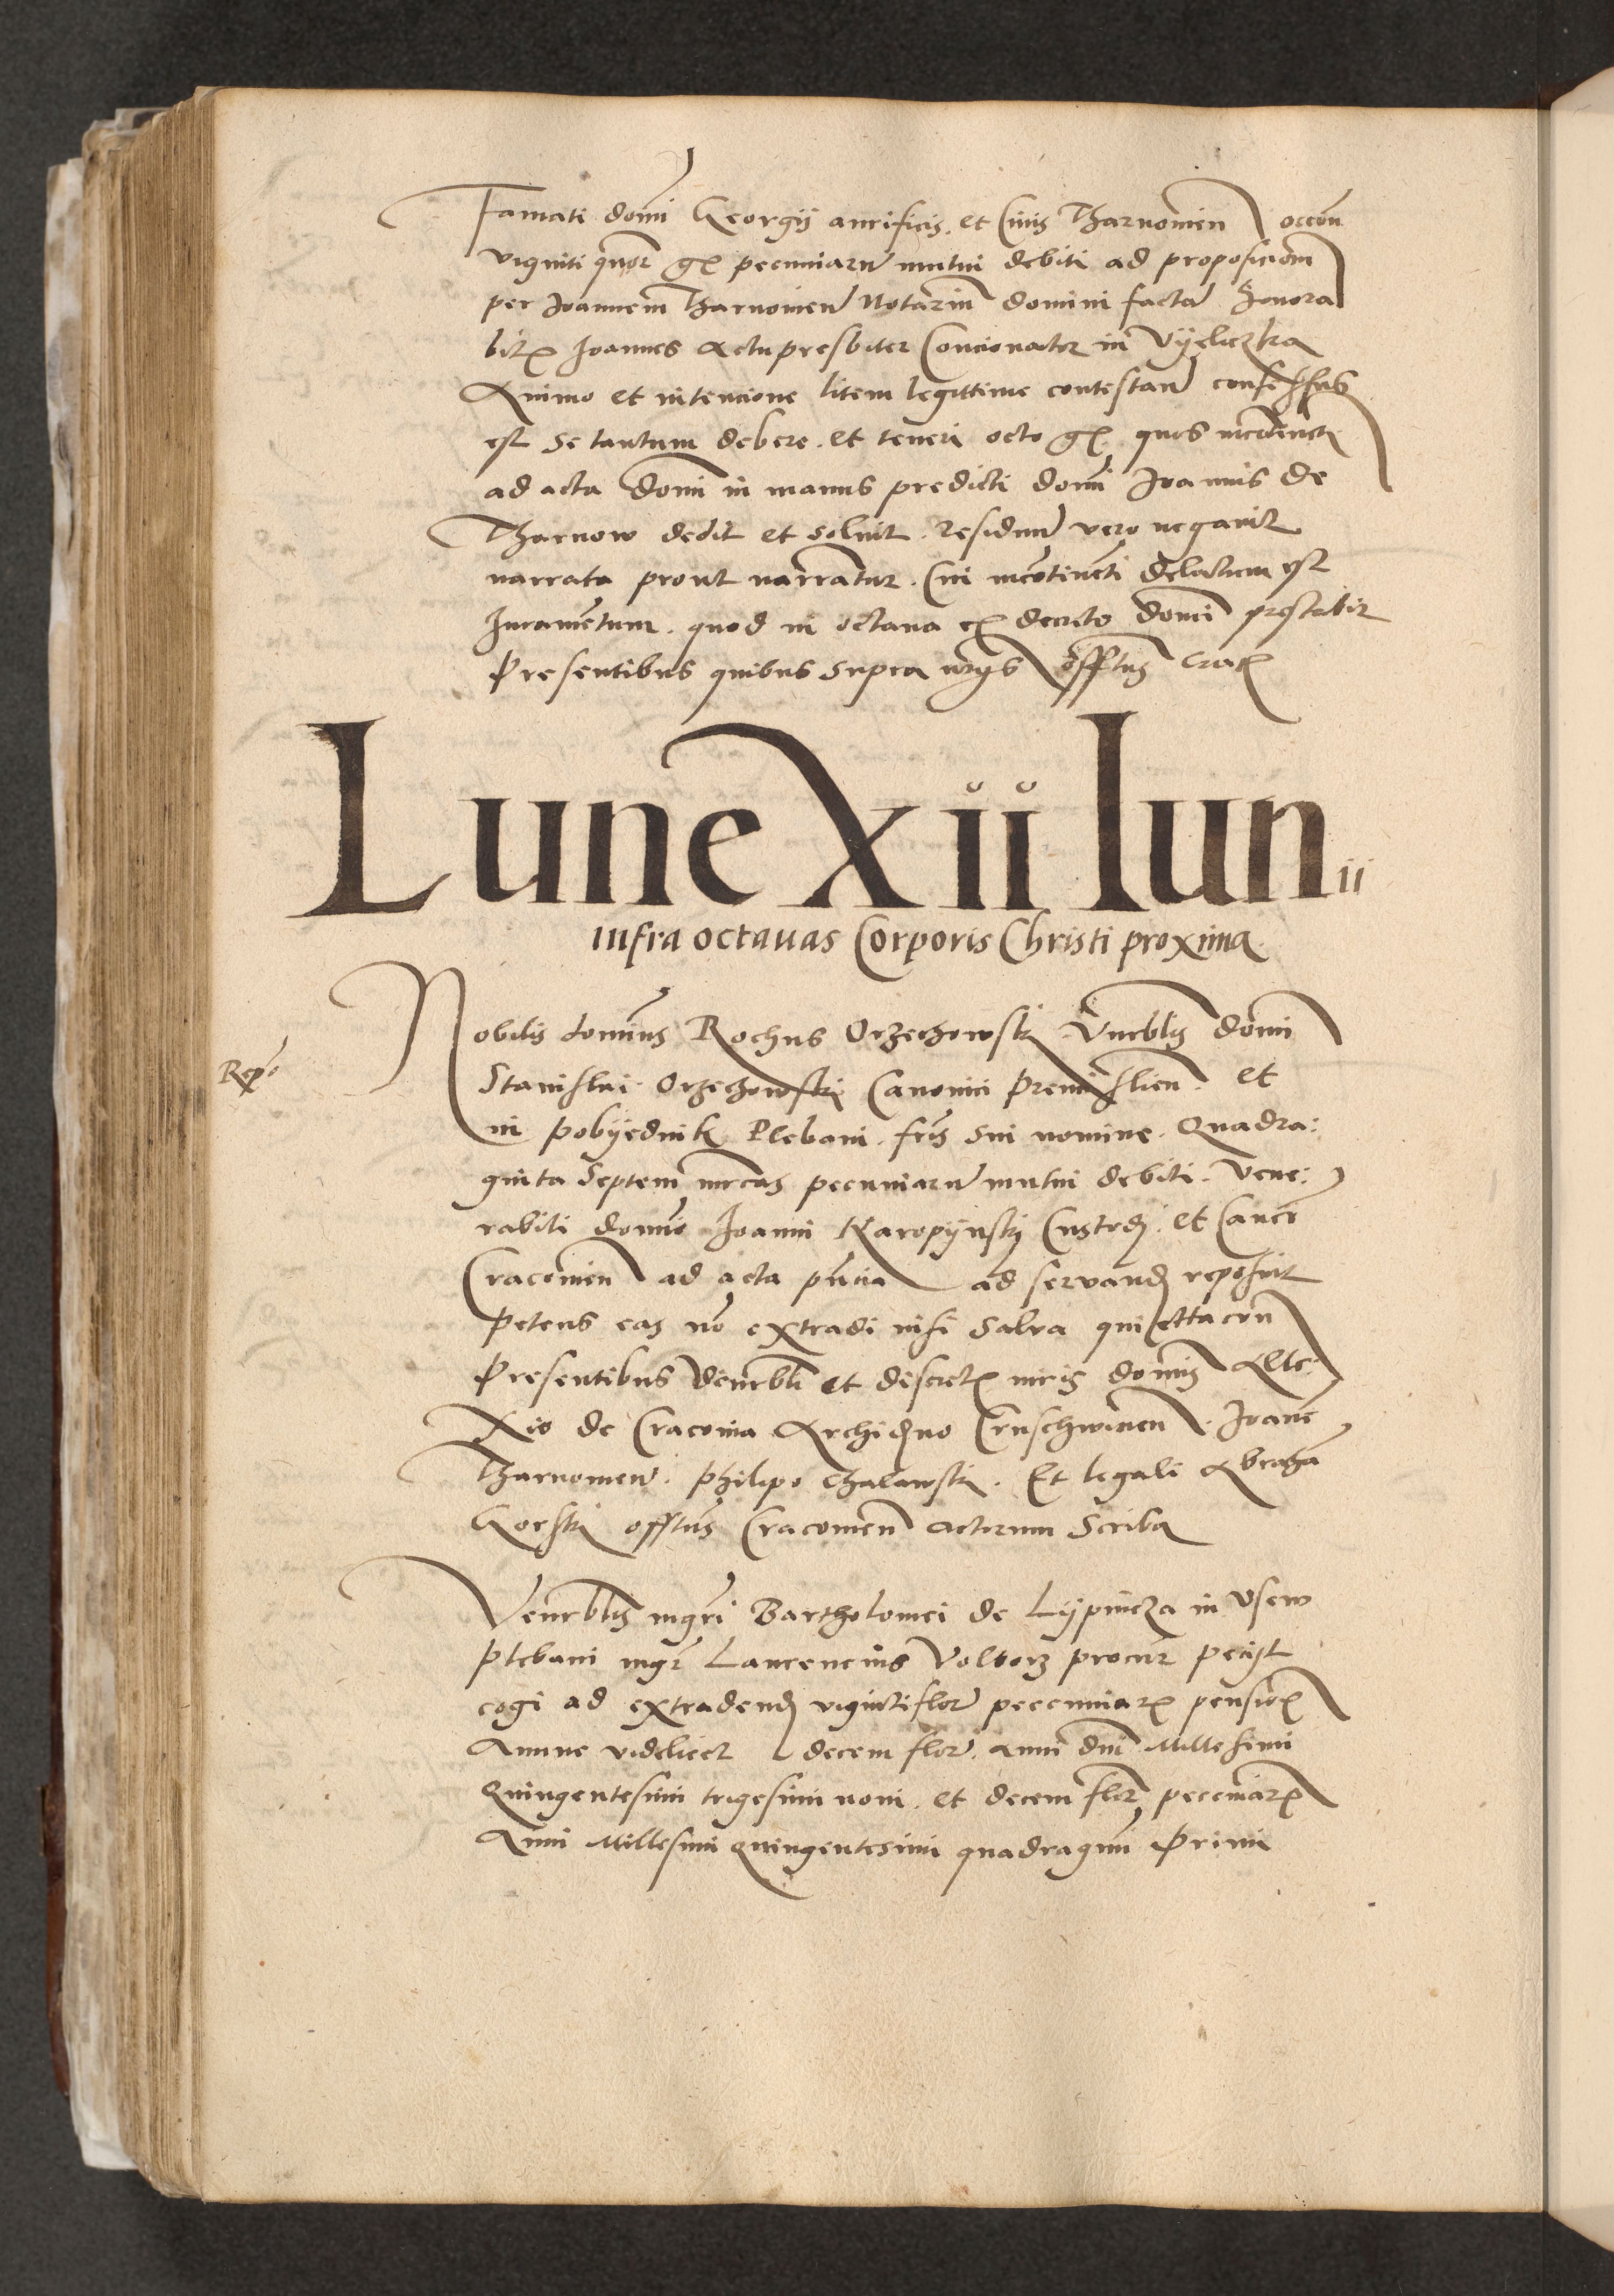 Famati domi Georgij aurificis et Civis Tharnovien occon
viginti quor gr pecuniaru mutui debiti ad proposiciom
per Joannem Tharnovien Notariu domini facta Honora
bilis Joannes Actu presbiter Concionator in Vyeliczka
Animo et intencione litem legittime contestan confessus
est se tantum debere et teneri octo gr quos incontinti
ad acta domi in manus predicti domi Joannis de
Tharnow dedit et solvit. Residuu vero negavit
narrata prout narrantur. Cui incotineti delatum est
Juramentum. quod in octava ex decreto domi prestabit
Presentibus quibus supra offitus Crac
Lune Xii Iunii
infra octauas Corporis Christi proxima
Nobilis dominus Rochus Orzechowski Venrblis domi
Repo
Stanislai Orzechowski Canonici Premislien. et
in Pobyednik Plebani. fris sui nomine. Quadra:
ginta Septem mrcas pecuniaru mutui debiti. Vene:
rabili domio Joanni Karopynsky Custodi. et Canco
Cracovien ad acta pntia ad servand reposuit
petens eas no extradi nisi salva quiettacon
Presentibus Venrbli et discretis viris domis Ale:
xio de Cracovia Archidno Cruschwicien. Joane
Tharnovien. Philipo Chalawski. Et legali Abraha
Gorski offitus Cracovien actorum Scriba
Venrblis mgri Bartholomei de Lypnicza in Usew
plebani mgr Laurencius Voltorz procur peciit
cogi ad extradend viginti flor pecuniar pension
Annue videlicet decem flor. anni dni Millesimi
Quingentesimi trigesimi noni. et decem flor pecuniar
Anni Millesimi quingentesimi quadragmi Primi